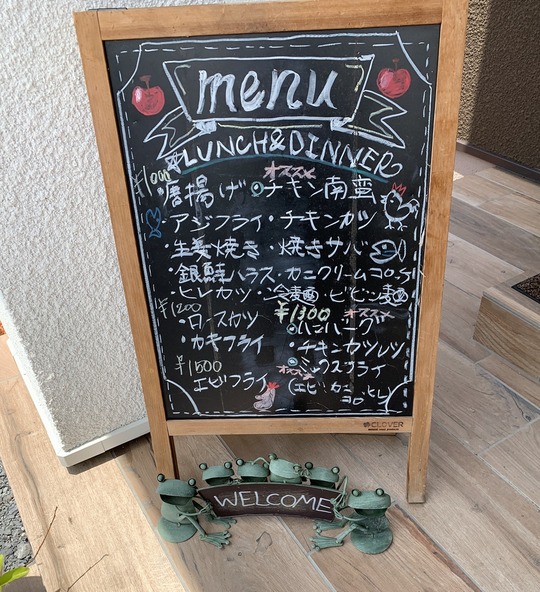 menu
LUNCH&DINNER
¥1000 オススメ
・唐揚げ ◎チキン南蛮
・アジフライ・チキンカツ
・生姜焼き・焼きサバ
・銀鮭ハラス・カニクリームコロッケ
ヒレカツ・冷麺・ビビン麺
¥1200 ¥1300 オススメ
・ロースカツ ◎ハンバーグ
・カキフライ ・チキンカツレツ
¥1500 オススメ ◎ミックスフライ
エビフライ (エビ、カニコロ、ヒレ)
CLOVER
WELCOME